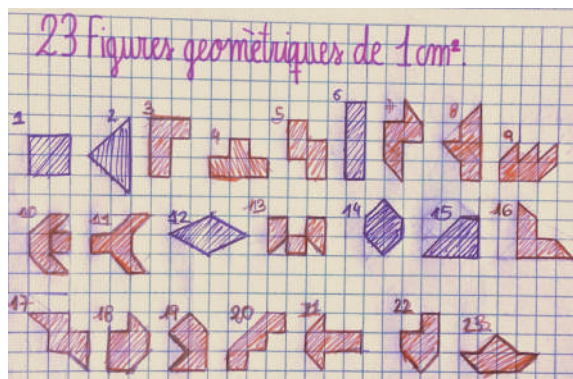 23 Figures geomètriques de 1 cm².
1 2 3 4 5 6 7 8 9
10 11 12 13 14 15 16
17 18 19 20 21 22 23